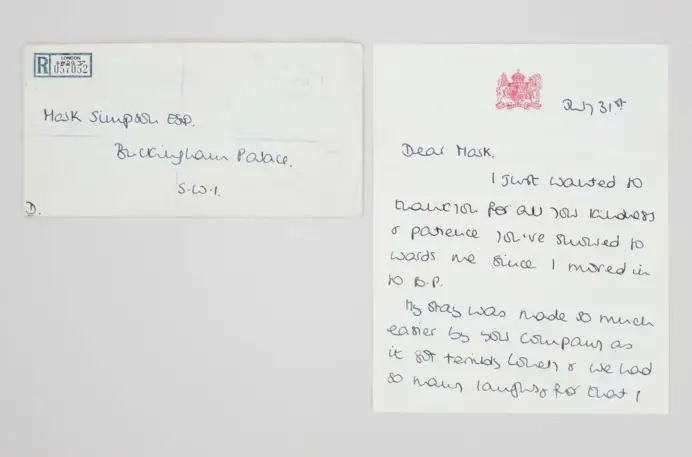 R
LONDON
057052
Mark Simpson ESQ.
Buckingham Palace.
S.W.1.
D.
July 31st
Dear Mark,
I just wanted to
thank you for all your kindness
& patience you've showed to
wards me since I moved in
to B.P.
My stay was made so much
easier by your company as
it got terribly lonely & we had
so many laughs, for that I